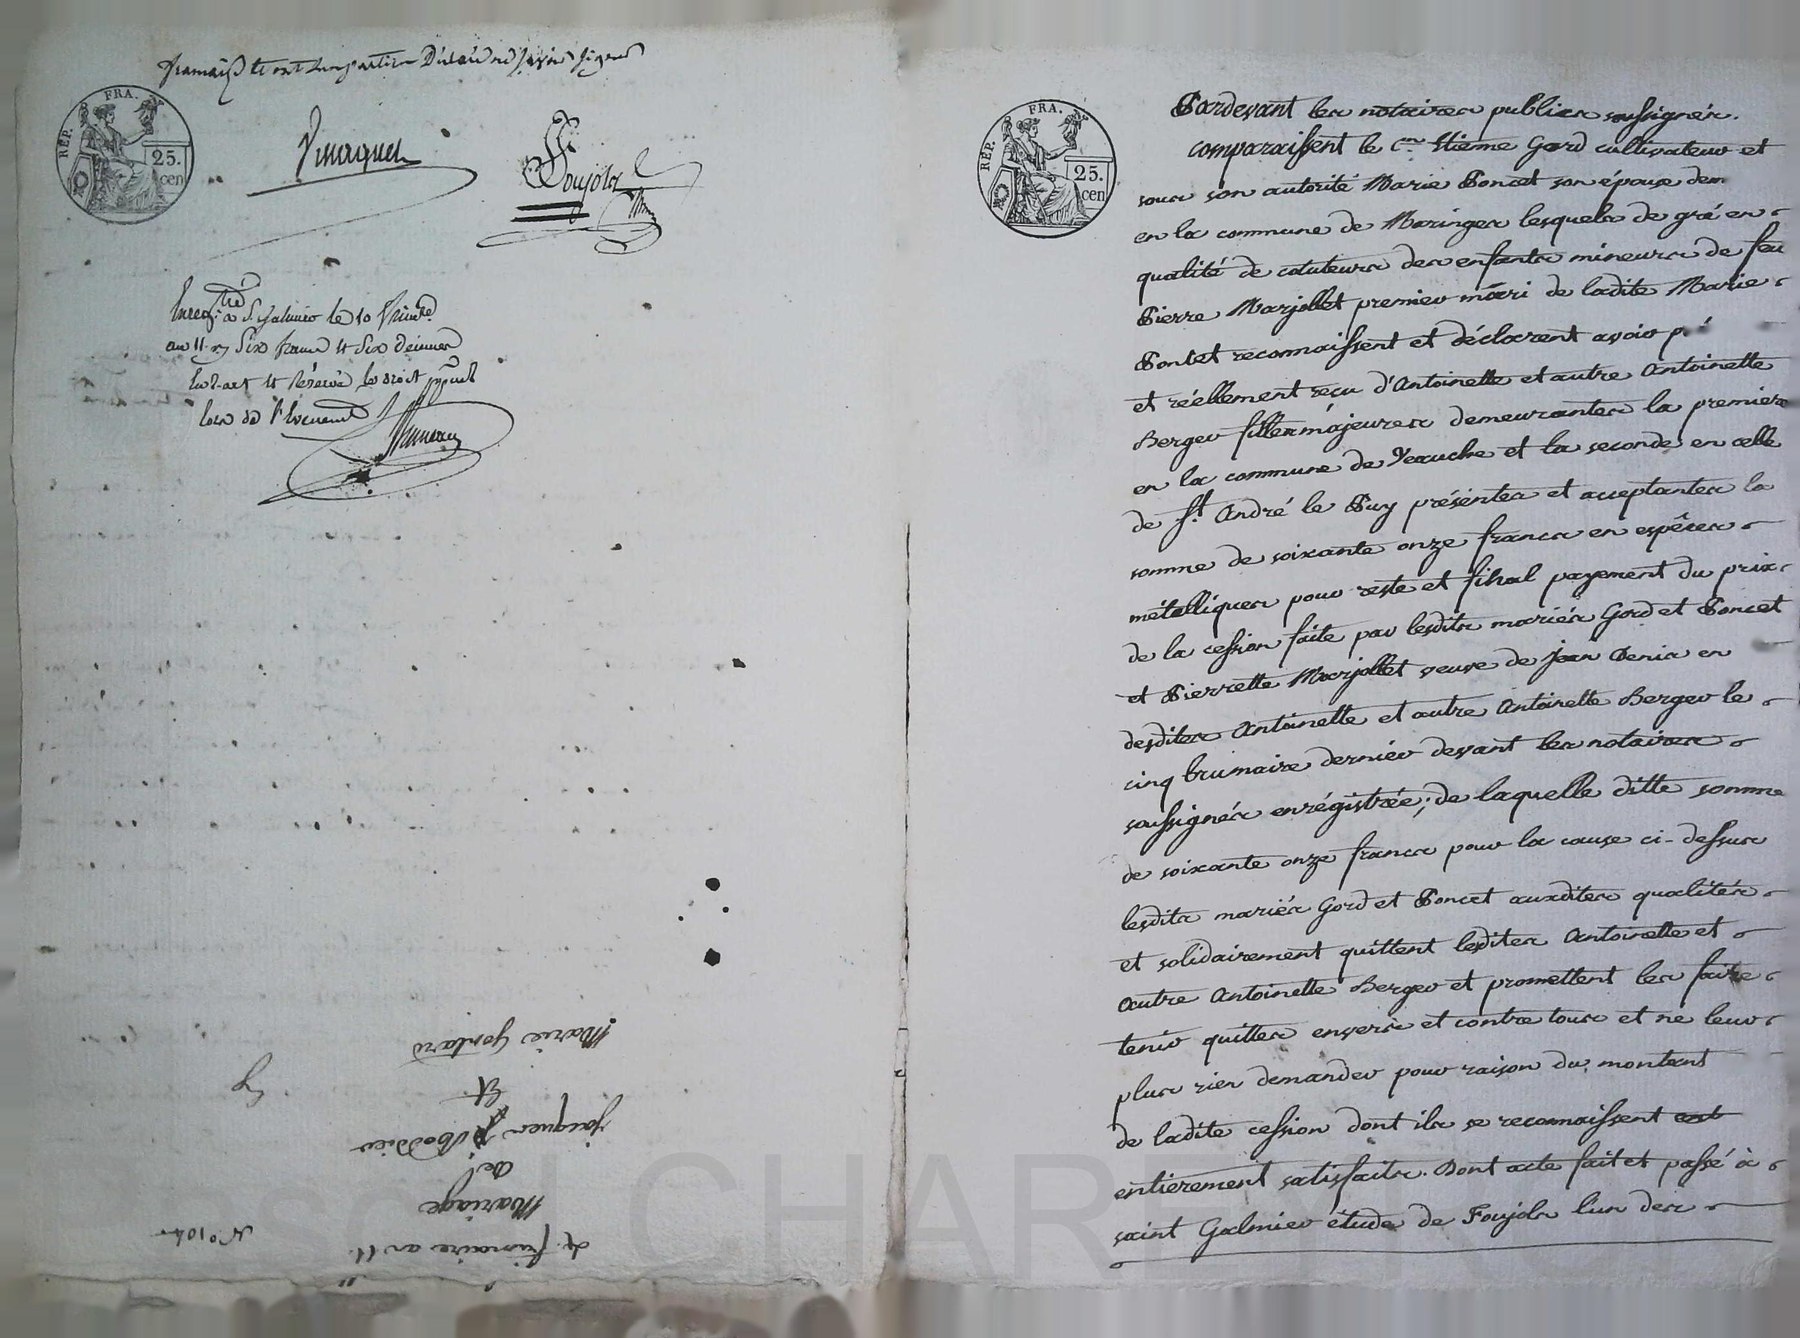 de savoir signer
RÉP. FRA.
25.
cen
Foujols
Enreg.ré à St Galmier le 10 frimre
an 11. six francs
et réservé les droits
lors de l'Evenement
Marie Gontard
Et
jacques
de
Mariage
4 frimaire an 11.
N.º 104
RÉP. FRA.
25.
cen
Pardevant les notaires publics soussignés.
comparaissent le cen Etienne Gord cultivateur et
sous son autorité Marie Poncet son épouse dem
en la commune de Maringes lesquels de gré en
qualité de cotuteurs des enfants mineurs de feu
Pierre Marjollet premier mari de ladite Marie
Poncet reconnaissent et déclarent avoir
et réellement reçu d'Antoinette et autre Antoinette
Berger filles majeures demeurantes la premiere
en la commune de Veauche et la seconde en celle
de St. André le Puy présentes et acceptantes la
somme de soixante onze francs en espêces
métalliques pour reste et final payement du prix
de la cession faite par lesdits mariés Gord et Poncet
et Pierrette Marjollet veuve de jean Denis en
desdites Antoinette et autre Antoinette Berger le
cinq brumaire dernier devant les notaires
soussignés enrégistrée; de laquelle ditte somme
de soixante onze francs pour la cause ci-dessus
lesdits mariés Gord et Poncet auxdites qualités
et solidairement quittent lesdites Antoinette et
autre Antoinette Berger et promettent les faire
tenir quittes envers et contre tous et ne leur
plus rien demander pour raison du montant
de ladite cession dont ils se reconnaissent
entierement satisfaits. Dont acte fait et passé à
saint Galmier étude de Foujols l'un des